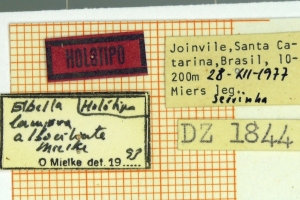 HOLOTIPO
Joinvile, Santa Ca-
tarina, Brasil, 10-
200m 28-XII-1977
Miers leg.
Serrinha
Elbella Holótipo
lampra
albociliata
Mielke
O Mielke det. 19.....
DZ 1844